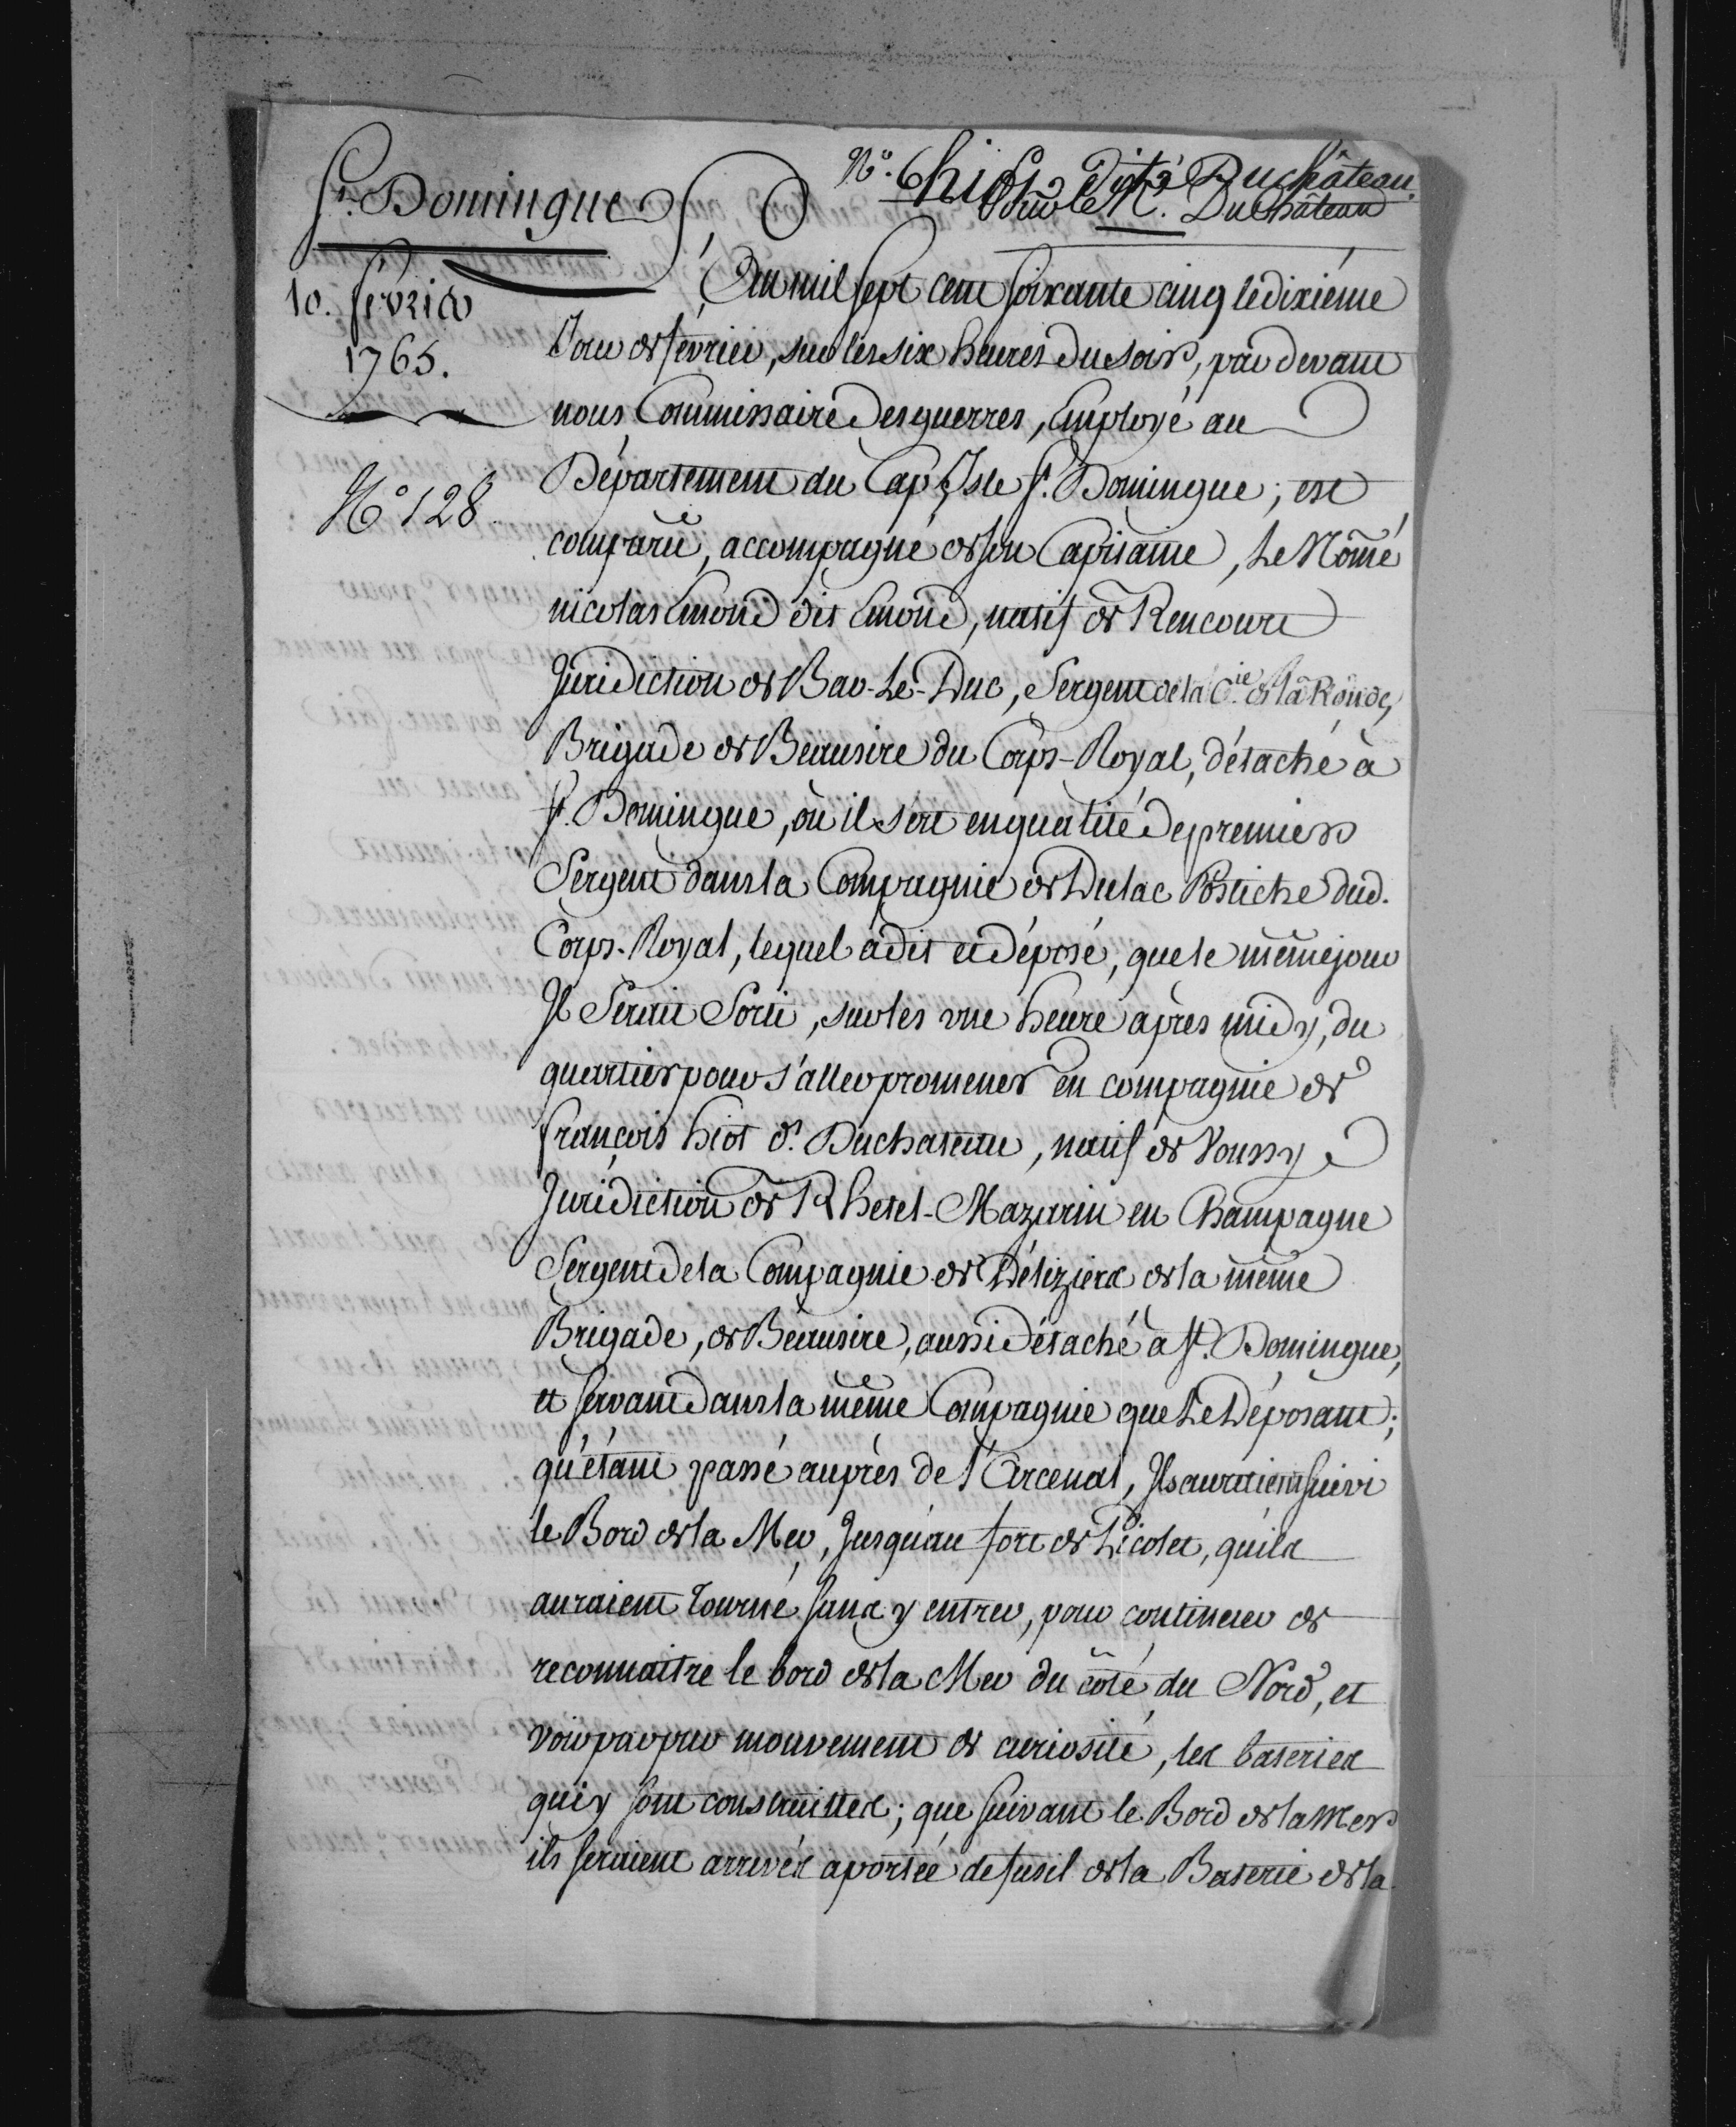 St. Domingue
No. hiot dit Duchâteau.
Pour le N. DuChâteau
10. février
1765.
N° 128
L'an mil sept cent soixante cinq le dixième
Jour de février, sur les six heures du soir, par devant
nous Commissaire des guerres, Employé au
Département du Cap, Isle St. Domingue; est
comparu, accompagné de son Capitaine, Le Nom̃é
nicolas Emond dit Emond, natif de Rencourt
Juridiction de Bar-Le-Duc, Sergent de la Cie. de la Ronde,
Brigade de Beausire du Corps-Royal, détaché à
St. Domingue, où il sert en qualité de premier
Sergent dans la Compagnie de Dulac Postiche dud.
Corps-Royal, lequel a dit et déposé, que le même jour
Il Serait Sorti, sur les une heure après midy, du
quartier pour s'aller promener en compagnie de
françois hiot dt. Duchateau, natif de Voussy
Juridiction de Rhetel-Mazarin en Champagne
Sergent de la Compagnie de Déliziers de la même
Brigade, de Beausire, aussi détaché à St. Domingue,
et servant dans la même Compagnie que Le Déposant;
qu'étant passé auprès de l'Arcenal, Ils auraient suivi
le Bord de la Mer, Jusqu'au fort de Picolet, qu'ils
auraient Tourné sans y entrer, pour continuer de
reconnaitre le bord de la Mer du côté du Nord, et
voir par pur mouvement de curiosité, les bateries
qui y sont construittes; que suivant le Bord de la Mer
ils seraient arrivés a portée de fusil de la Baterie de la